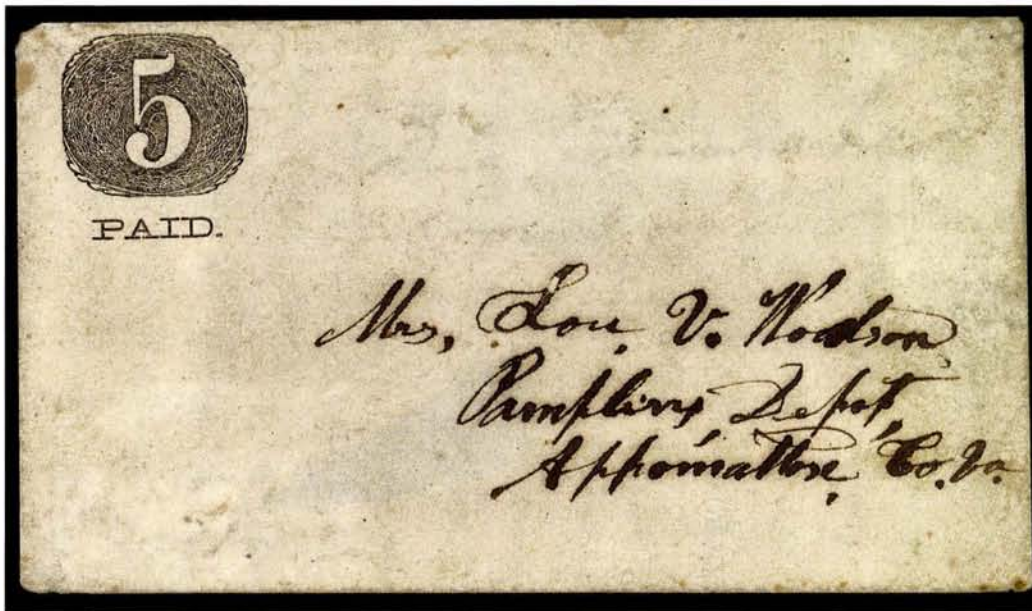 5
PAID.
Mrs, Lou, V. Woodson,
Pamplins Depot,
Appomattox, Co. Va.